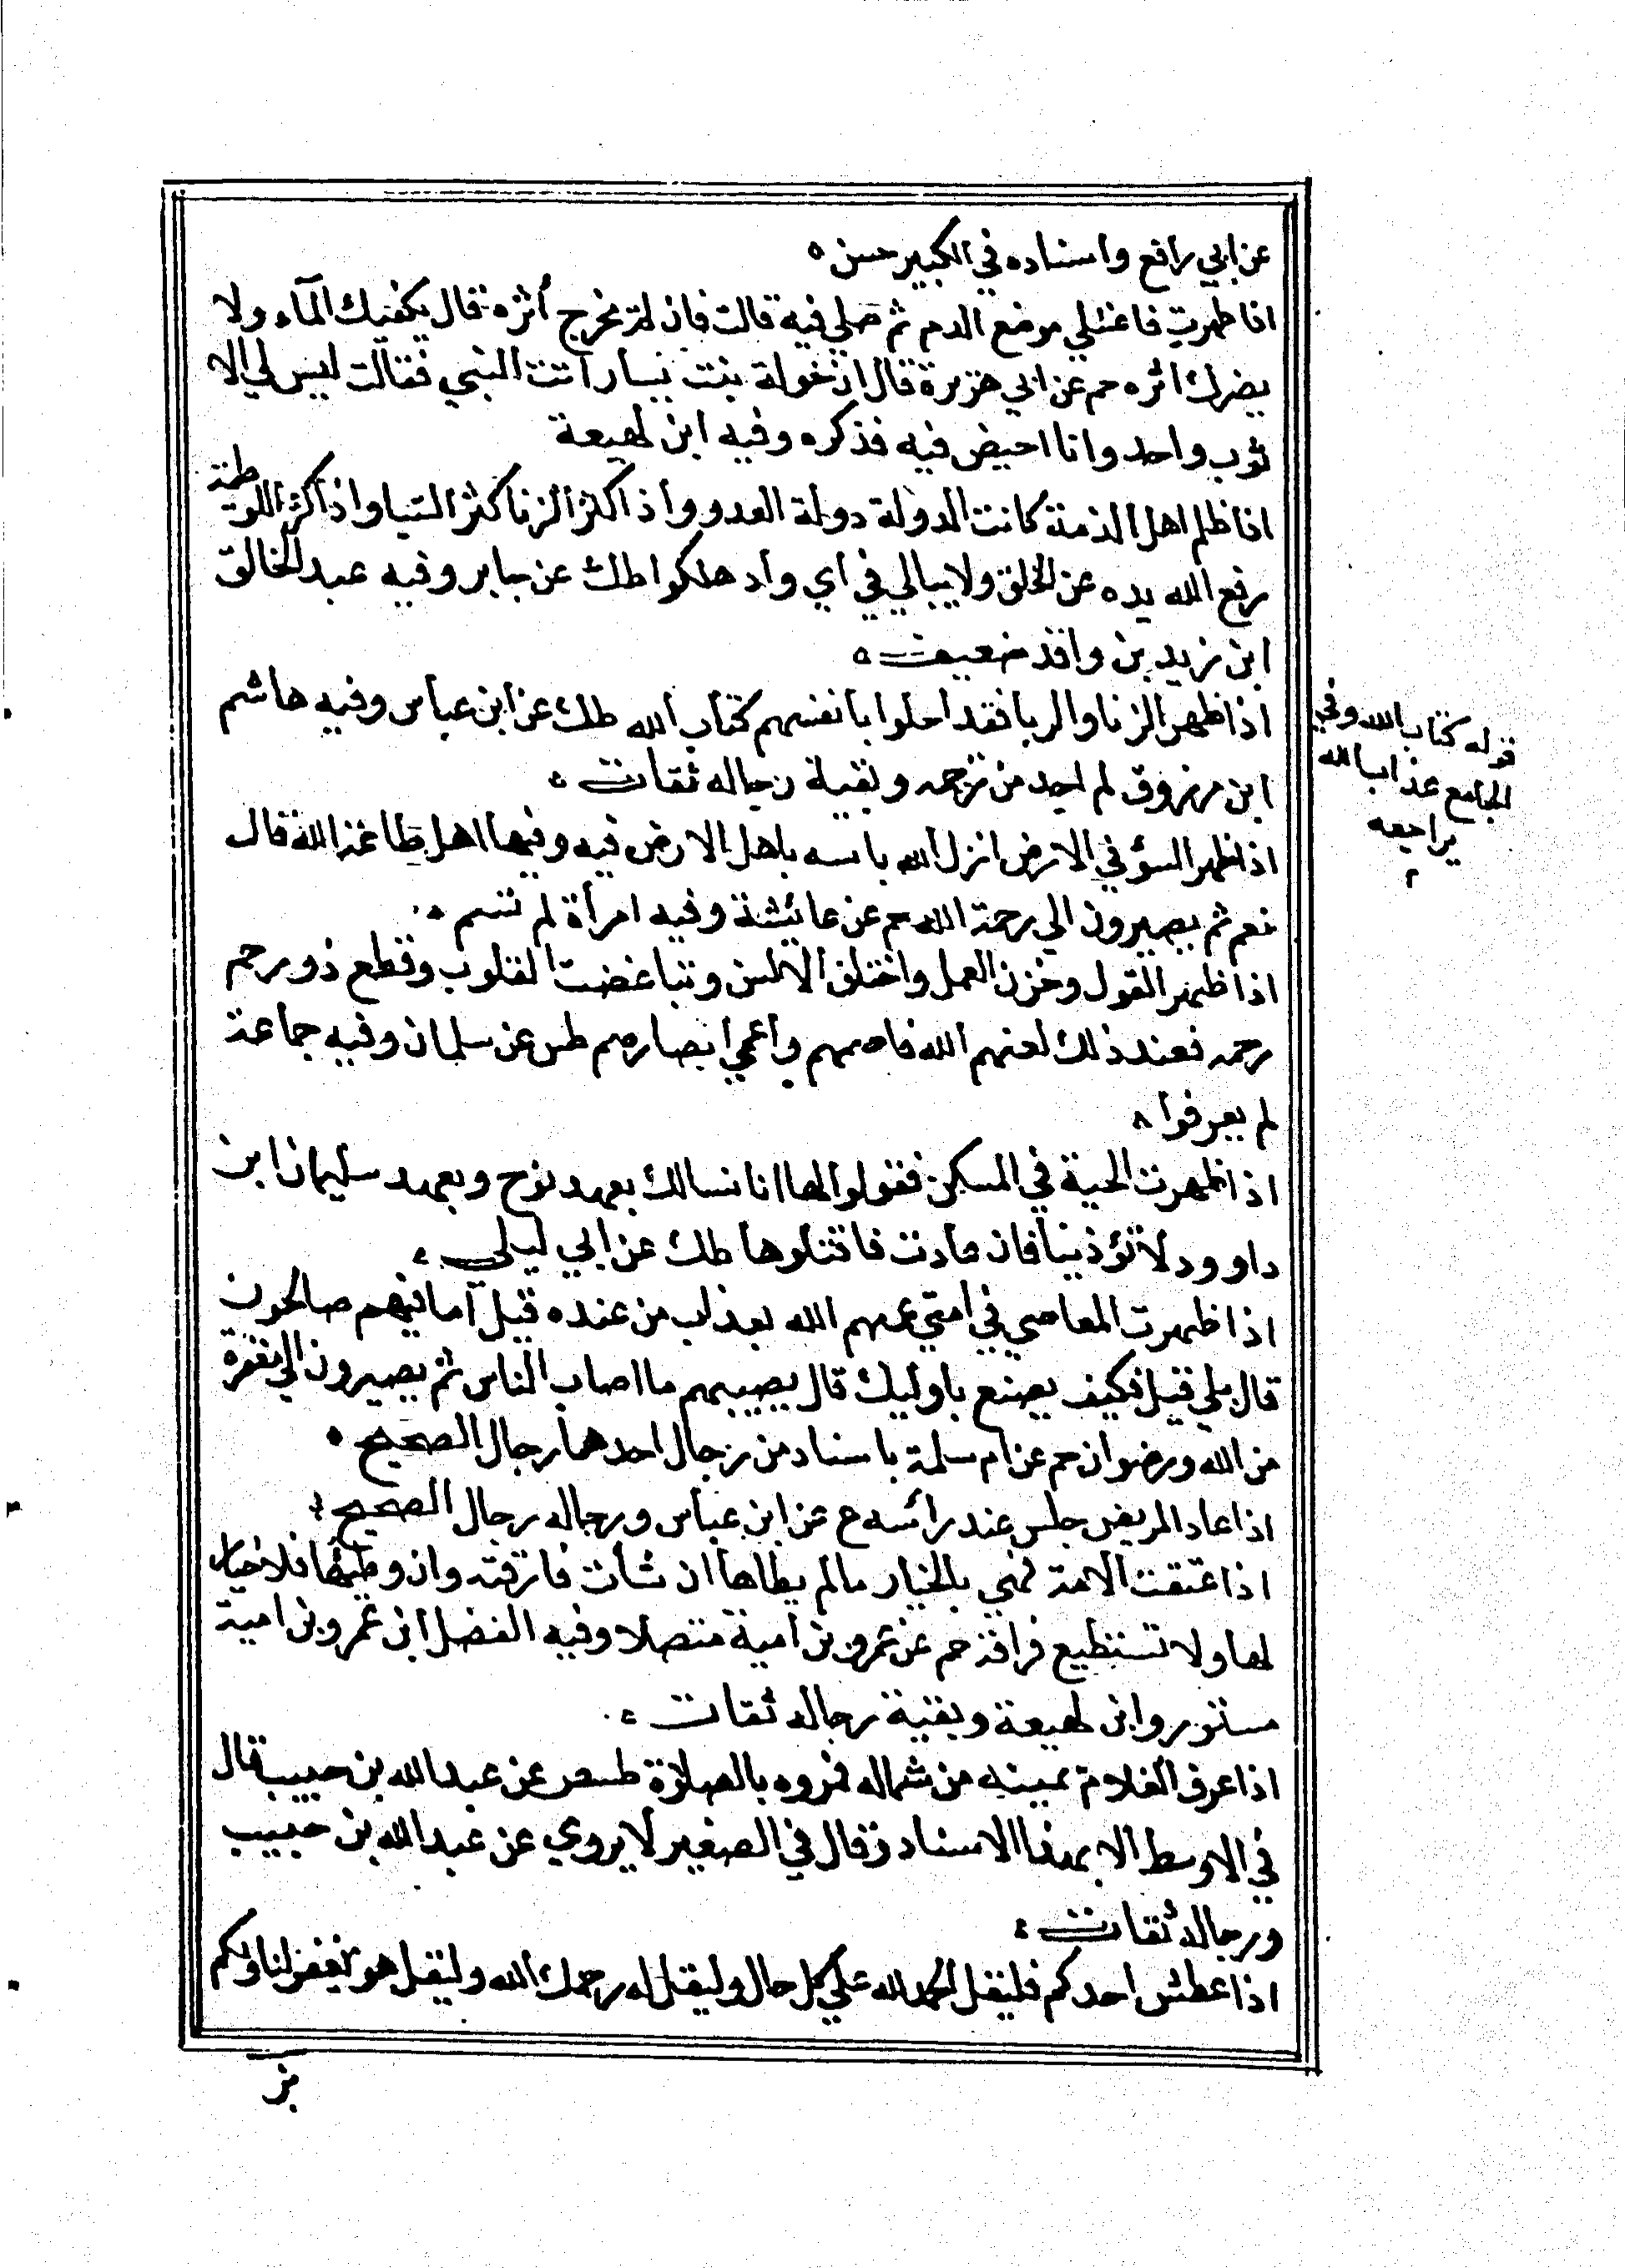 عن ابي رافع واسناده في الكبير حسن ه
اذا طهرت فاغسلي موضع الدم ثم صلي فيه قالت فان لم يخرج أثره قال يكفيك المآء ولا
يضرك اثره حم عن ابي هريرة قال ان خولة بنت يسار أتت النبي فقالت ليس لي الا
ثوب واحد وانا احيض فيه فذكره وفيه ابن لهيعة
اذا ظلم اهل الذمة كانت الدولة دولة العدو واذا كثر الزنا كثر السبا واذا كثر اللوطية
رفع الله يده عن الخلق ولا يبالي في اي واد هلكوا طك عن جابر وفيه عبد الخالق
ابن زيد بن واقد ضعيف ه
اذا ظهر الزنا والربا فقد احلوا بانفسهم كتاب الله طك عن ابن عباس وفيه هاشم
ابن مرزوق لم اجد من ترجمه وبقية رجاله ثقات ه
اذا ظهر السؤ في الارض انزل الله باسه باهل الارض فيه وفيها اهل طاعة الله قال
نعم ثم يصيرون الي رحمة الله حم عن عائشة وفيه امرأة لم تسم ه
اذا ظهر القول وخزن العمل واختلف الالسن وتباغضت القلوب وقطع ذو رحم
رحمه فعند ذلك لعنهم الله فاصمهم واعمي ابصارهم طس عن سلمان وفيه جماعة
لم يعرفوا ه
اذا ظهرت الحية في المسكن فقولوا لها انا نسالك بعهد نوح وبعهد سليمان ابن
داوود لا تؤذينا فان عادت فاقتلوها طك عن ابي ليلي ه
اذا ظهرت المعاصي في امتي عمهم الله بعذاب من عنده قيل أما فيهم صالحون
قال بلي قيل فكيف يصنع باوليك قال يصيبهم ما اصاب الناس ثم يصيرون الي مغفرة
من الله ورضوان حم عن ام سلمة باسناد من رجال احدهما رجال الصحيح ه
اذا عاد المريض جلس عند رائسه ع عن ابن عباس ورجاله رجال الصحيح ه
اذا عتقت الامة فهي بالخيار مالم يطاها ان شأت فارقته وان وطيها فلا خيار
لها ولا تستطيع فراقه حم عن عمرو بن امية متصلا وفيه الفضل ابن عمرو بن امية
مستور وابن لهيعة وبقية رجاله ثقات ه
اذا عرف الغلام يمينه من شماله فمروه بالصلاة طسص عن عبد الله بن حبيب قال
في الاوسط الا بهذا الاسناد وقال في الصغير لا يروي عن عبد الله بن حبيب
ورجاله ثقات ه
اذا عطش احدكم فليقل الحمد لله علي كل حال وليقل له رحمك الله وليقل هو يغفر لنا ولكم
قوله كتاب الله وفي
الجامع عذاب الله
يراجعه
م
بز